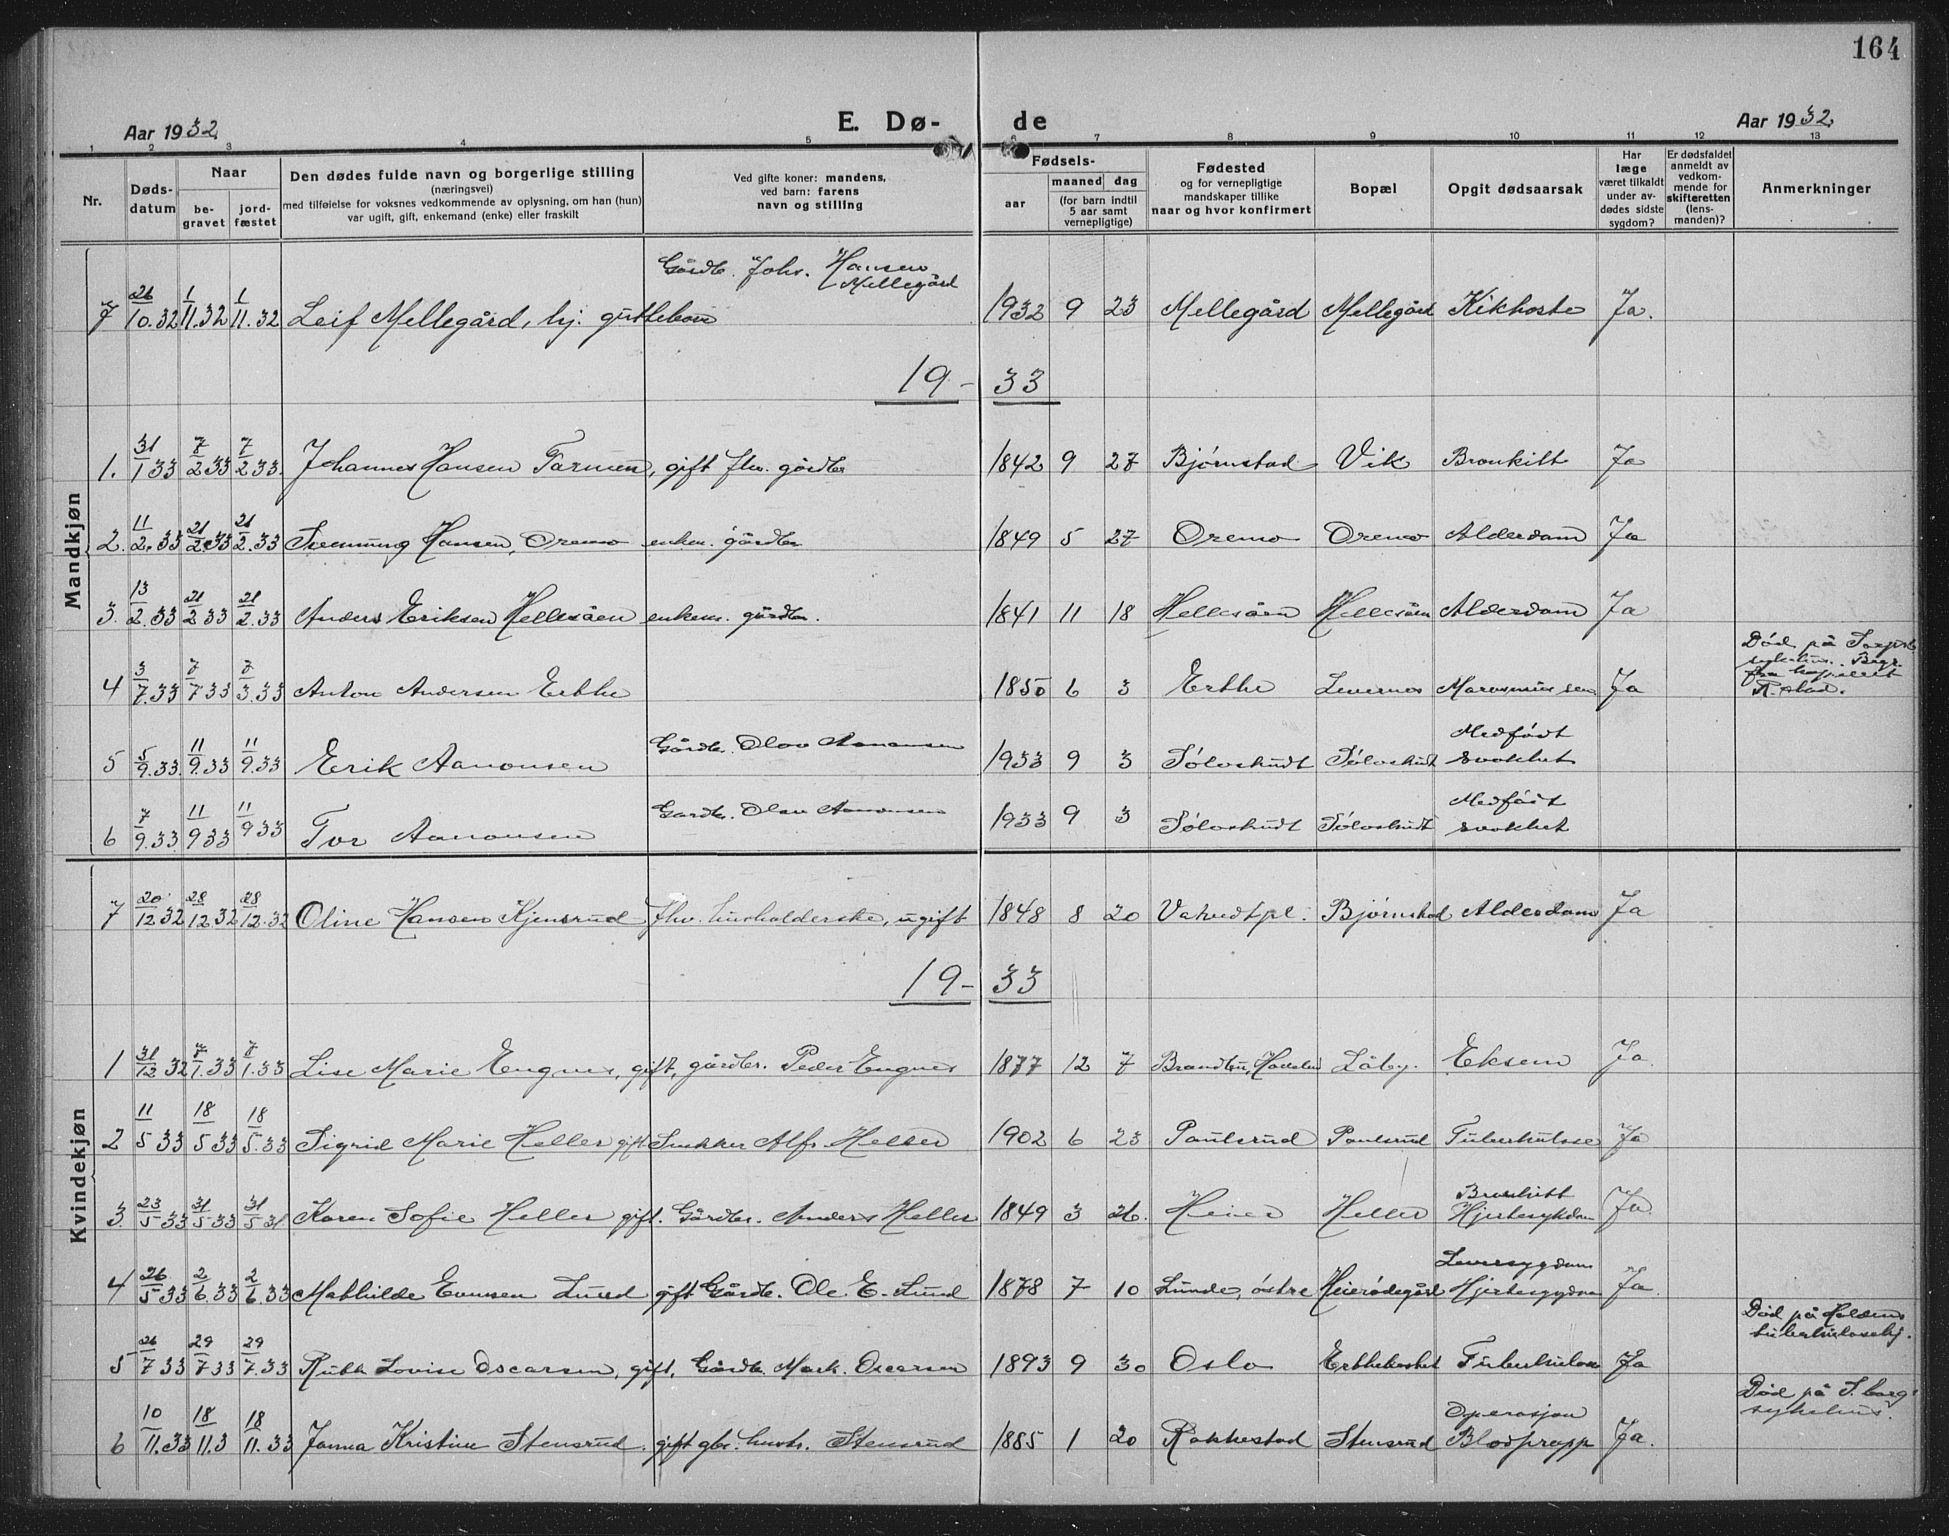 164
Aar 1932.
E. Dø-
de
Aar 1932.
1 2 3 4 5 6 7 8 9 10 11 12 13
Nr.
Døds-
datum
Naar
be-
gravet
jord-
fæstet
Den dødes fulde navn og borgerlige stilling
(næringsvei)
med tilføielse for voksnes vedkommende av oplysning, om han (hun)
var ugift, gift, enkemand (enke) eller fraskilt
Ved gifte koner: mandens,
ved barn: farens
navn og stilling
Fødsels-
aar
maaned dag
(for barn indtil
5 aar samt
vernepligtige)
Fødested
og for vernepligtige
mandskaper tillike
naar og hvor konfirmert
Bopæl
Opgit dødsaarsak
Har
læge
været tilkaldt
under av-
dødes sidste
sygdom?
Er dødsfaldet
anmeldt av
vedkom-
mende for
skifteretten
(lens-
manden)?
Anmerkninger
Mandkjøn
Gårdbr. Johs. Hansen
Mellegård
7 26/10.32 1/11.32 1/11.32 Leif Mellegård, hj. guttebarn 1932 9 23 Mellegård Mellegård Kikhoste Ja.
19-33
1. 31/1 33 7/2 33 7/2 33. Johannes Hansen Farmen, gift fhv. gårdbr 1842 9 27 Bjørnstad Vik Bronkitt Ja
2. 11/2.33 21/2 33 21/2.33 Hansen, Oremo enkem. gårdbr 1849 5 27 Oremo Oremo Alderdom Ja
3. 13/2.33 21/2 33 21/2.33 Anders Eriksen Hellesåen enkem. gårdbr. 1841 11 18 Hellesåen Hellesåen Alderdom Ja
Død på
4 3/7.33 7/7 33 7/3.33 Anton Andersen Erthe 1850 6 3 Erthe Levernes Marasmus sen Ja
5 5/9.33. 11/9.33 11/9.33 Erik Aanonsen Gårdbr. Olav Aanonsen 1933 9 3 Sølvskudt Sølvskudt Medfødt
svakhet
6 7/9.33. 11/9 33 11/9 33 Tor Aanonsen Gardbr. Olav Aanonsen 1933 9 3 Sølvskudt Sølvskudt Medfødt
svakhet
Kvindekjøn
7 20/12 32 28/12.32 28/12.32 Oline Hansen Kjensrud fhv. husholderske, ugift 1848 8 20 Bjørnstad Alderdom Ja
19-33
1 31/12 32 7/1.33 7/1.33 Lise Marie Engnes, gift, gårdbr. Peder Engnes 1877 12 7 Brandbu, Låby. Eksem Ja.
2 11/5 33 18/5 33 18/5.33 Sigrid Marie Heller gift Snekker Alf Heller 1902 6 23 Paulsrud Paulsrud Tuberkulose Ja
3. 23/5 33 31/5 33 31/5 31 Karen Sofie Heller gift. Gårdbr. Anders Heller 1849 3 26. Heier Heller Bronkitt
Hjertesykdom Ja.
4 26/5 33 2/6.33 2/6.33 Mathilde Evensen Lund gift Gårdbr. Ole E. Lund 1878 7 10 Lunde, østre Heierødegård Leversygdom
Hjertesygdom Ja.
Død på
tuberkulosehj.
5 26/7 33 29/7 33 29/7.33 Ruth Lovise Oscarsen, gift, Gårdbr. Mark. Oscarsen 1893 9 30 Oslo Tuberkulose Ja
Død på S.borg
sykehus.
6 10/11.33 18/11.3 18/11.33 Janna Kristine Stensrud. gift gbr. Stensrud 1885 1 20 Rakkestad Stensrud Operasjon
Blodpropp Ja.